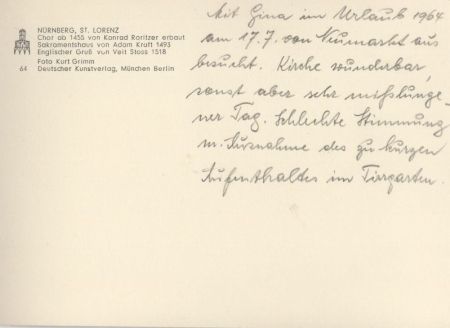 NÜRNBERG, ST. LORENZ
Chor ab 1455 von Konrad Roritzer erbaut
Sakramentshaus von Adam Kraft 1493
Englischer Gruß von Veit Stoss 1518
Foto Kurt Grimm
64 Deutscher Kunstverlag, München Berlin
Mit Gina im Urlaub 1964
am 17.7. von Neumarkt aus
besucht. Kirche wunderbar,
sonst aber sehr mißlunge-
ner Tag. Schlechte Stimmung
m. Ausnahme des zu kurzen
Aufenthaltes im Tiergarten.